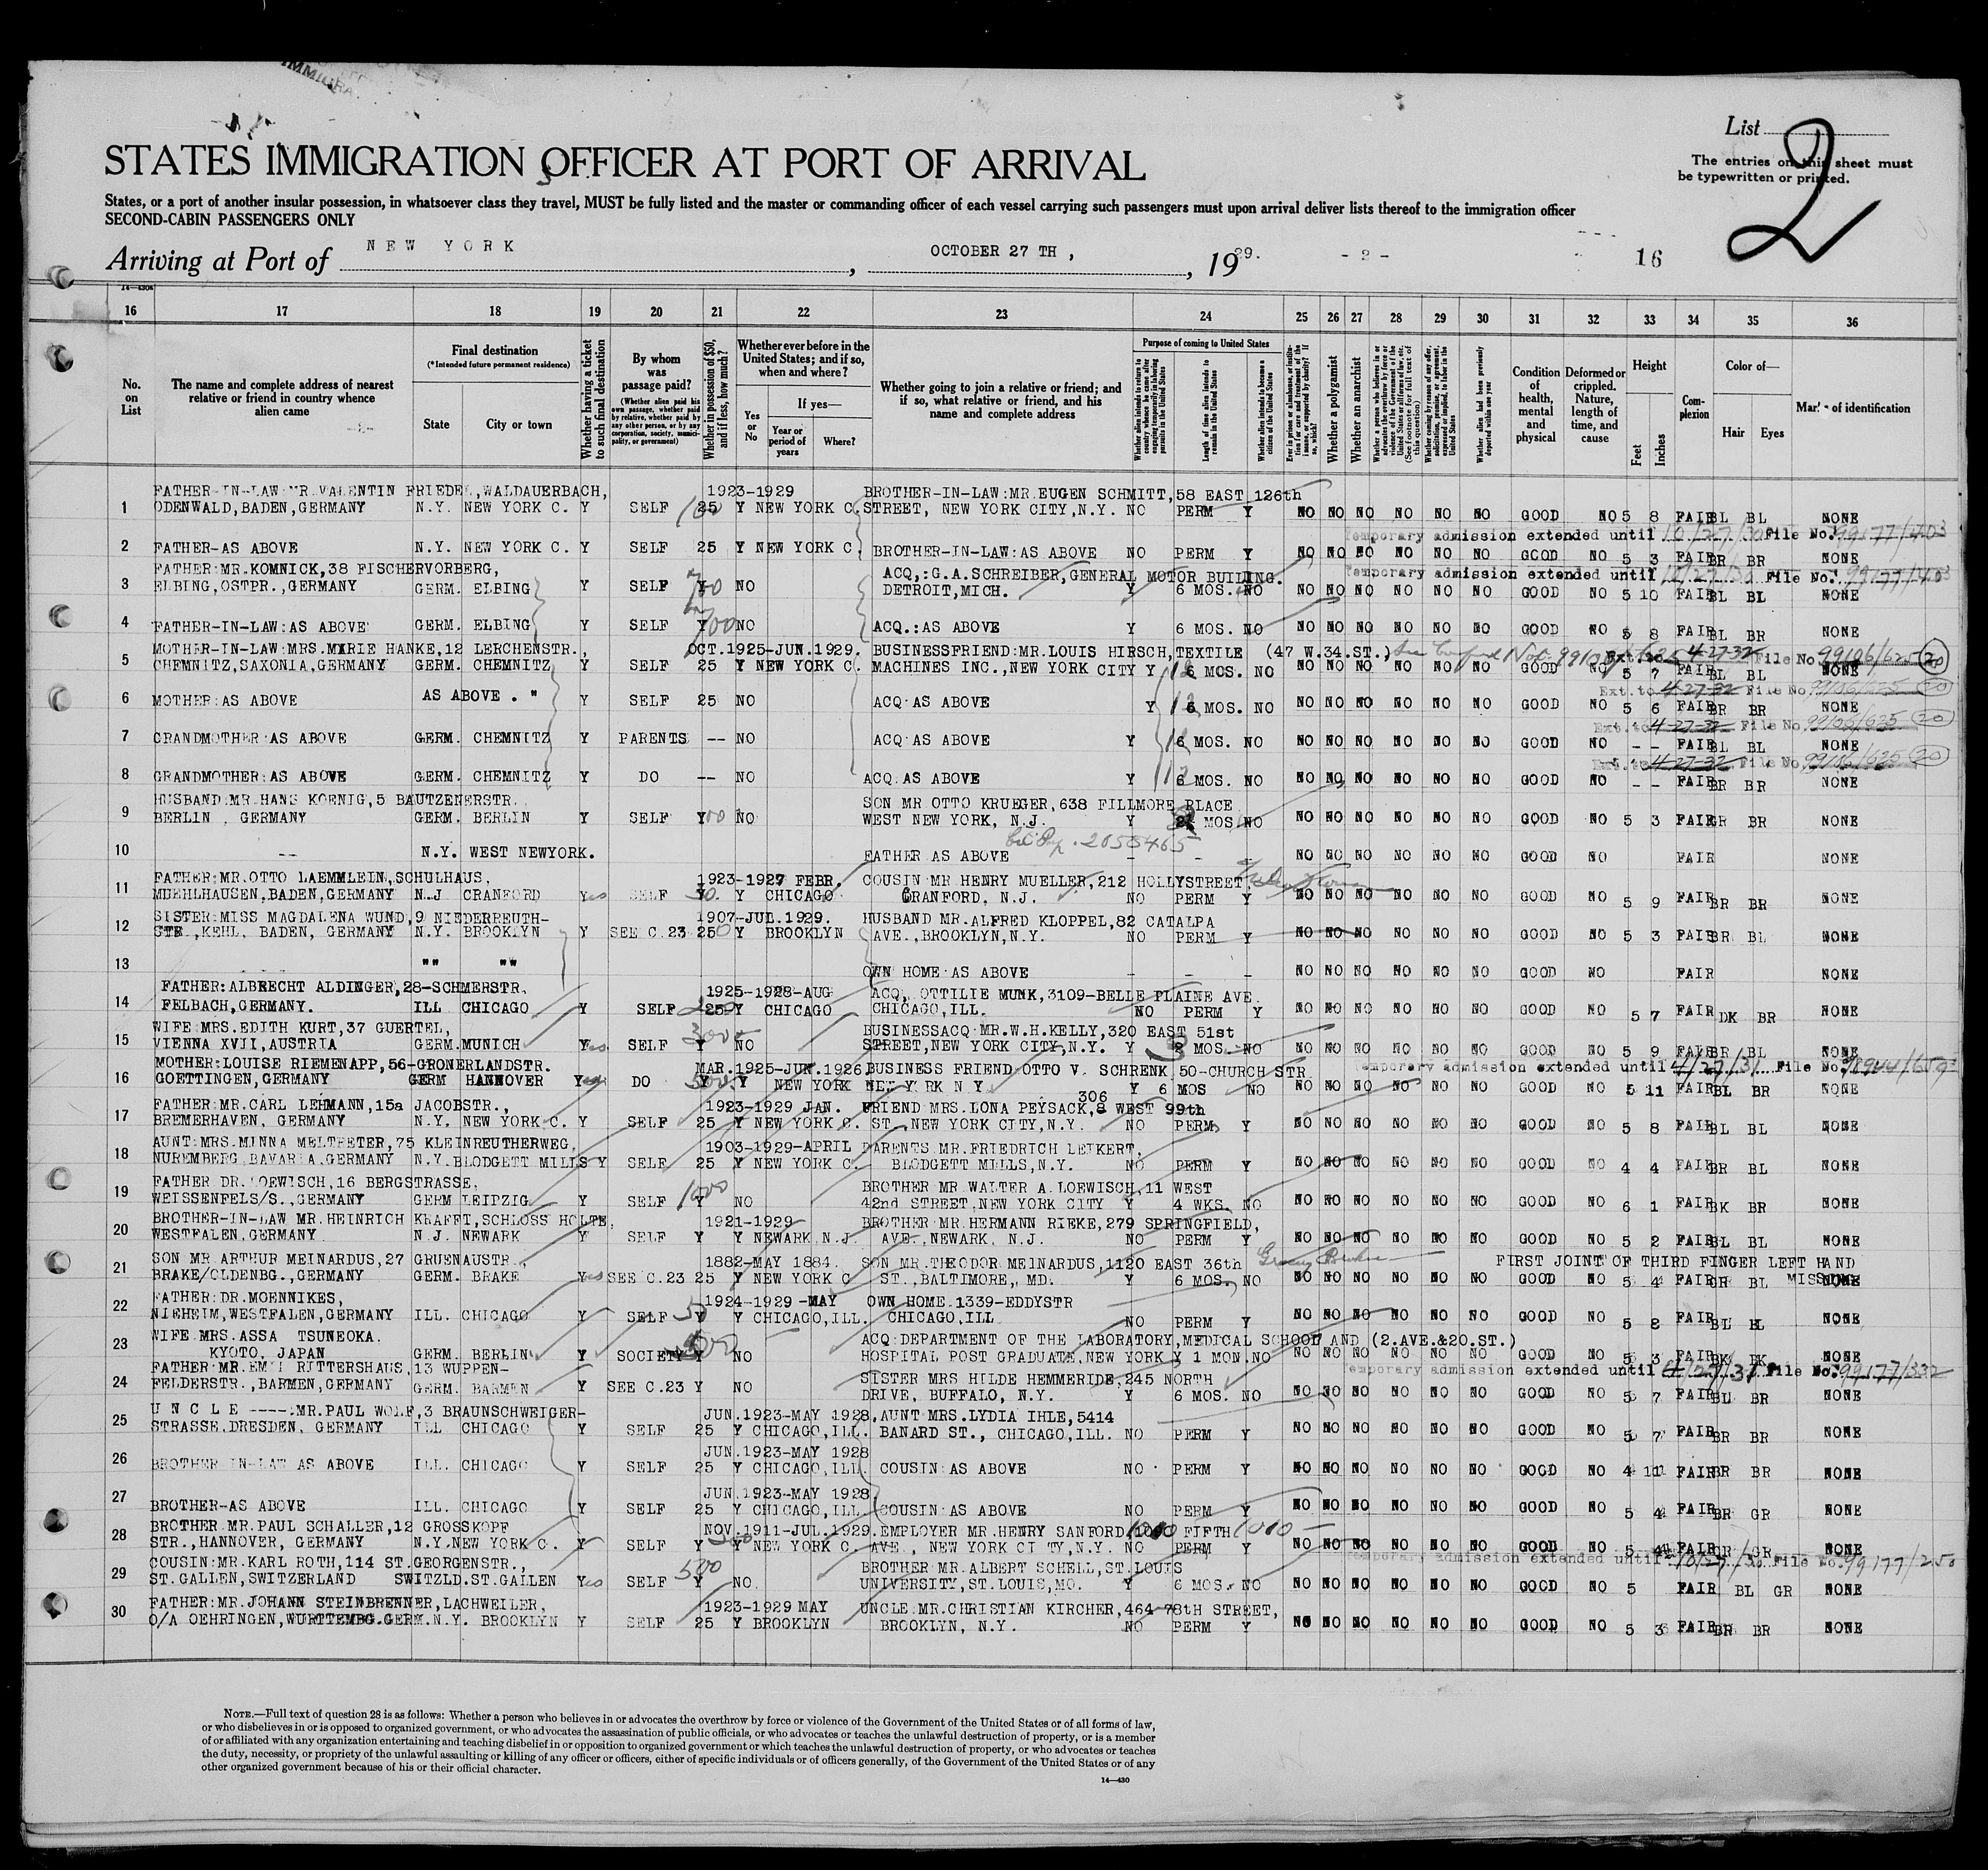 IMMIGRA
List
2
The entries on this sheet must
be typewritten or printed.
STATES IMMIGRATION OFFICER AT PORT OF ARRIVAL
States, or a port of another insular possession, in whatsoever class they travel, MUST be fully listed and the master or commanding officer of each vessel carrying such passengers must upon arrival deliver lists thereof to the immigration officer
SECOND-CABIN PASSENGERS ONLY
Arriving at Port of NEW YORK, OCTOBER 27 TH, 1929. - 2 - 16
14-430A
16 17 18 19 20 21 22 23 24 25 26 27 28 29 30 31 32 33 34 35 36
No. on List
The name and complete address of nearest relative or friend in country whence alien came
Final destination
(*Intended future permanent residence)
State
City or town
Whether having a ticket to such final destination
By whom was passage paid?
(Whether alien paid his own passage, whether paid by relative, whether paid by any other person, or by any corporation, society, municipality, or government)
Whether in possession of $50, and if less, how much?
Whether ever before in the United States; and if so, when and where?
Yes or No
If yes—
Year or period of years
Where?
Whether going to join a relative or friend; and if so, what relative or friend, and his name and complete address
Purpose of coming to United States
Whether alien intends to return to country whence he came after engaging temporarily in laboring pursuits in the United States
Length of time alien intends to remain in the United States
Whether alien intends to become a citizen of the United States
Ever in prison or almshouse, or institution for care and treatment of the insane, or supported by charity? If so, which?
Whether a polygamist
Whether an anarchist
Whether a person who believes in or advocates the overthrow by force or violence of the Government of the United States or all forms of law, etc. (See footnote for full text of this question)
Whether coming by reason of any offer, solicitation, promise, or agreement, expressed or implied, to labor in the United States
Whether alien had been previously deported within one year
Condition of health, mental and physical
Deformed or crippled. Nature, length of time, and cause
Height
Feet
Inches
Complexion
Color of—
Hair
Eyes
Marks of identification
FATHER-IN-LAW:MR.VALENTIN FRIEDEL,WALDAUERBACH, 1923-1929 BROTHER-IN-LAW:MR.EUGEN SCHMITT,58 EAST 126th
1 ODENWALD,BADEN,GERMANY N.Y. NEW YORK C. Y SELF 25 Y NEW YORK C. STREET, NEW YORK CITY,N.Y. NO PERM Y NO NO NO NO NO NO GOOD NO 5 8 FAIR BL BL NONE
Temporary admission extended until 10/27/30 File No. 99177/403
2 FATHER-AS ABOVE N.Y. NEW YORK C. Y SELF 25 Y NEW YORK C. BROTHER-IN-LAW:AS ABOVE NO PERM Y NO NO NO NO NO NO GOOD NO 5 3 FAIR BR BR NONE
FATHER:MR.KOMNICK,38 FISCHERVORBERG, ACQ,:G.A.SCHREIBER,GENERAL MOTOR BUILING. Temporary admission extended until 10/27/30 File No. 99177/403
3 ELBING,OSTPR.,GERMANY GERM. ELBING Y SELF Y NO DETROIT,MICH. Y 6 MOS. NO NO NO NO NO NO NO GOOD NO 5 10 FAIR BL BL NONE
4 FATHER-IN-LAW:AS ABOVE GERM. ELBING Y SELF Y NO ACQ.:AS ABOVE Y 6 MOS. NO NO NO NO NO NO NO GOOD NO 5 8 FAIR BL BR NONE
MOTHER-IN-LAW:MRS.MARIE HANKE,12 LERCHENSTR., OCT.1925-JUN.1929. BUSINESSFRIEND:MR.LOUIS HIRSCH,TEXTILE (47 W.34.ST.) Ext. to 4-27-32 File No. 99106/625 (20)
5 CHEMNITZ,SAXONIA,GERMANY GERM. CHEMNITZ Y SELF 25 Y NEW YORK C. MACHINES INC.,NEW YORK CITY Y 6 MOS. NO NO NO NO NO NO NO GOOD NO 5 7 FAIR BL BL NONE
Ext. to 4-27-32 File No. 99106/625 (20)
6 MOTHER:AS ABOVE AS ABOVE . " Y SELF 25 NO ACQ:AS ABOVE Y 6 MOS. NO NO NO NO NO NO NO GOOD NO 5 6 FAIR BR BR NONE
Ext. to 4-27-32 File No. 99106/625 (20)
7 GRANDMOTHER:AS ABOVE GERM. CHEMNITZ Y PARENTS -- NO ACQ:AS ABOVE Y 6 MOS. NO NO NO NO NO NO NO GOOD NO - - FAIR BL BL NONE
Ext. to 4-27-32 File No. 99106/625 (20)
8 GRANDMOTHER:AS ABOVE GERM. CHEMNITZ Y DO -- NO ACQ:AS ABOVE Y 6 MOS. NO NO NO NO NO NO NO GOOD NO - - FAIR BR BR NONE
HUSBAND:MR.HANS KOENIG,5 BAUTZENERSTR. SON MR OTTO KRUEGER,638 FILLMORE PLACE
9 BERLIN , GERMANY GERM. BERLIN Y SELF Y NO WEST NEW YORK, N.J. Y MOS NO NO NO NO NO NO NO GOOD NO 5 3 FAIR GR BR NONE
2058465
10 -- N.Y. WEST NEWYORK. FATHER AS ABOVE - - - NO NO NO NO NO NO GOOD NO FAIR NONE
FATHER:MR.OTTO LAEMMLEIN,SCHULHAUS, 1923-1927 FEBR. COUSIN MR HENRY MUELLER,212 HOLLYSTREET,
11 MUEHLHAUSEN,BADEN,GERMANY N.J CRANFORD Yes SELF 50. Y CHICAGO CRANFORD, N.J. NO PERM Y NO NO NO NO NO NO GOOD NO 5 9 FAIR BR BR NONE
SISTER:MISS MAGDALENA WUND,9 NIEDERREUTH- 1907-JUL.1929. HUSBAND MR.ALFRED KLOPPEL,82 CATALPA
12 STR.,KEHL, BADEN, GERMANY N.Y. BROOKLYN Y SEE C.23 25 Y BROOKLYN AVE.,BROOKLYN,N.Y. NO PERM Y NO NO NO NO NO NO GOOD NO 5 3 FAIR BR BL NONE
13 - - - "" "" OWN HOME AS ABOVE - - - NO NO NO NO NO NO GOOD NO FAIR NONE
FATHER:ALBRECHT ALDINGER,28-SCHMERSTR. 1925-1928-AUG ACQ, OTTILIE MUNK,3109-BELLE PLAINE AVE.
14 FELBACH,GERMANY. ILL CHICAGO Y SELF 25 Y CHICAGO CHICAGO,ILL. NO PERM Y NO NO NO NO NO NO GOOD NO 5 7 FAIR DK BR NONE
WIFE MRS.EDITH KURT,37 GUERTEL, 3000 BUSINESSACQ MR.W.H.KELLY,320 EAST 51st
15 VIENNA XVII,AUSTRIA GERM.MUNICH Yes SELF Y NO STREET,NEW YORK CITY,N.Y. Y MOS. NO NO NO NO NO NO NO GOOD NO 5 9 FAIR BR BL NONE
MOTHER:LOUISE RIEMENAPP,56-GRONERLANDSTR. MAR.1925-JUN.1926 BUSINESS FRIEND OTTO V. SCHRENK 50-CHURCH STR Temporary admission extended until 4/27/31 File No.
16 GOETTINGEN,GERMANY GERM HANNOVER Yes DO Y NEW YORK NEW YORK N Y Y 6 MOS NO NO NO NO NO NO NO GOOD NO 5 11 FAIR BL BR NONE
306
FATHER:MR.CARL LEHMANN,15a JACOBSTR., 1923-1929 JAN. FRIEND MRS.LONA PEYSACK,8 WEST 99th
17 BREMERHAVEN, GERMANY N.Y. NEW YORK C. Y SELF 25 Y NEW YORK C. ST., NEW YORK CITY,N.Y. NO PERM Y NO NO NO NO NO NO GOOD NO 5 8 FAIR BL BL NONE
AUNT:MRS.MINNA MELTRETER,75 KLEINREUTHERWEG, 1903-1929-APRIL PARENTS MR.FRIEDRICH LEIKERT,
18 NUREMBERG,BAVARIA,GERMANY N.Y.BLODGETT MILLS Y SELF 25 Y NEW YORK C. BLODGETT MILLS,N.Y. NO PERM Y NO NO NO NO NO NO GOOD NO 4 4 FAIR BR BL NONE
FATHER DR.LOEWISCH,16 BERGSTRASSE, 1000 BROTHER MR.WALTER A.LOEWISCH,11 WEST
19 WEISSENFELS/S.,GERMANY GERM LEIPZIG Y SELF Y NO 42nd STREET,NEW YORK CITY Y 4 WKS. NO NO NO NO NO NO NO GOOD NO 6 1 FAIR BK BR NONE
BROTHER-IN-LAW MR.HEINRICH KRAFFT,SCHLOSS HOLTE, 1921-1929 BROTHER MR.HERMANN RIEKE,279 SPRINGFIELD,
20 WESTFALEN,GERMANY N.J. NEWARK Y SELF Y Y NEWARK N.J. AVE.,NEWARK, N.J. NO PERM Y NO NO NO NO NO NO GOOD NO 5 2 FAIR BL BL NONE
SON MR ARTHUR MEINARDUS,27 GRUENAUSTR., 1882-MAY 1884. SON MR.THEODOR MEINARDUS,1120 EAST 36th FIRST JOINT OF THIRD FINGER LEFT HAND
21 BRAKE/OLDENBG.,GERMANY GERM. BRAKE Yes SEE C.23 25 Y NEW YORK C ST.,BALTIMORE, MD. Y 6 MOS. NO NO NO NO NO NO NO GOOD NO 5 4 FAIR GR BL MISSING
FATHER:DR.MOENNIKES, 1924-1929 -MAY OWN HOME 1339-EDDYSTR
22 NIEHEIM,WESTFALEN,GERMANY ILL. CHICAGO Y SELF Y Y CHICAGO,ILL. CHICAGO,ILL NO PERM Y NO NO NO NO NO NO GOOD NO 5 8 FAIR BL NONE
WIFE MRS.ASSA TSUNEOKA. ACQ:DEPARTMENT OF THE LABORATORY,MEDICAL SCHOOL AND (2.AVE.&20.ST.)
23 KYOTO, JAPAN GERM. BERLIN Y SOCIETY Y NO HOSPITAL POST GRADUATE,NEW YORK Y 1 MON.NO NO NO NO NO NO NO GOOD NO 5 3 FAIR BK BK NONE
FATHER:MR.EMIL RITTERSHAUS,13 WUPPEN- SISTER MRS HILDE HEMMERIDE,245 NORTH Temporary admission extended until 4/27/31 File No. 99177/332
24 FELDERSTR.,BARMEN,GERMANY GERM. BARMEN Y SEE C.23 Y NO DRIVE, BUFFALO, N.Y. Y 6 MOS. NO NO NO NO NO NO NO GOOD NO 5 7 FAIR BL BR NONE
U N C L E ----:MR.PAUL WOLF,3 BRAUNSCHWEIGER- JUN.1923-MAY 1928, AUNT MRS.LYDIA IHLE,5414
25 STRASSE,DRESDEN, GERMANY ILL CHICAGO Y SELF 25 Y CHICAGO,ILL. BANARD ST., CHICAGO,ILL. NO PERM Y NO NO NO NO NO NO GOOD NO 5 7 FAIR BR BR NONE
JUN.1923-MAY 1928
26 BROTHER IN-LAW AS ABOVE ILL. CHICAGO Y SELF 25 Y CHICAGO,ILL. COUSIN AS ABOVE NO PERM Y NO NO NO NO NO NO GOOD NO 4 11 FAIR BR BR NONE
JUN.1923-MAY 1928.
27 BROTHER-AS ABOVE ILL. CHICAGO Y SELF 25 Y CHICAGO,ILL COUSIN AS ABOVE NO PERM Y NO NO NO NO NO NO GOOD NO 5 4 FAIR BR GR NONE
BROTHER MR.PAUL SCHALLER,12 GROSSKOPF NOV.1911-JUL.1929. EMPLOYER MR.HENRY SANFORD,1000 FIFTH 1010
28 STR.,HANNOVER, GERMANY N.Y.NEW YORK C. Y SELF Y Y NEW YORK C. AVE., NEW YORK CITY,N.Y. NO PERM Y NO NO NO NO NO NO GOOD NO 5 4 FAIR GR GR NONE
COUSIN:MR.KARL ROTH,114 ST.GEORGENSTR., 500 BROTHER MR.ALBERT SCHELL,ST.LOUIS Temporary admission extended until 10/27/30 File No. 99177/250
29 ST.GALLEN,SWITZERLAND SWITZLD.ST.GALLEN Yes SELF Y NO. UNIVERSITY,ST.LOUIS,MO. Y 6 MOS. NO NO NO NO NO NO NO GOOD NO 5 FAIR BL GR NONE
FATHER:MR.JOHANN STEINBRENNER,LACHWEILER, 1923-1929 MAY UNCLE:MR.CHRISTIAN KIRCHER,464-78th STREET,
30 O/A OEHRINGEN,WURTTEMBG.GERM.N.Y. BROOKLYN Y SELF 25 Y BROOKLYN BROOKLYN, N.Y. NO PERM Y NO NO NO NO NO NO GOOD NO 5 3 FAIR BR BR NONE
NOTE.—Full text of question 28 is as follows: Whether a person who believes in or advocates the overthrow by force or violence of the Government of the United States or of all forms of law,
or who disbelieves in or is opposed to organized government, or who advocates the assassination of public officials, or who advocates or teaches the unlawful destruction of property, or is a member
of or affiliated with any organization entertaining and teaching disbelief in or opposition to organized government or which teaches the unlawful destruction of property, or who advocates or teaches
the duty, necessity, or propriety of the unlawful assaulting or killing of any officer or officers, either of specific individuals or of officers generally, of the Government of the United States or of any
other organized government because of his or their official character.
14-430